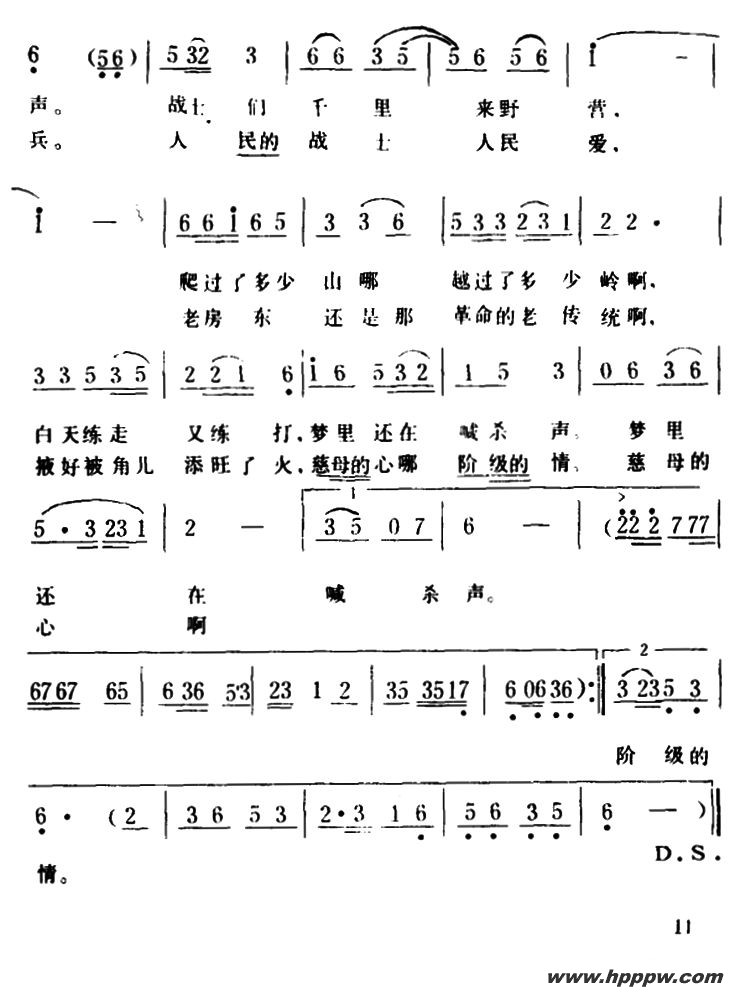 6 (56) | 5 32 3 | 6 6 3 5 | 5 6 5 6 | i - |
声。 战士们千里 来野营，
兵。 人民的战士 人民爱，
i — | 6 6 i 6 5 | 3 3 6 | 5 3 3 2 3 1 | 2 2 · |
爬过了多少山哪 越过了多少岭啊，
老房东还是那 革命的老传统啊，
3 3 5 3 5 | 2 2 1 6 | i 6 5 3 2 | 1 5 3 | 0 6 3 6 |
白天练走 又练打，梦里还在 喊杀声。梦里
掖好被角儿 添旺了火，慈母的心哪 阶级的情。慈母的
1
5 · 3 2 3 1 | 2 — | 3 5 0 7 | 6 — | (2 2 2 7 7 7 |
还在喊杀声。
心啊
2
67 67 65 | 6 36 5·3 | 23 1 2 | 35 35 17 | 6 06 36) :‖ 3 23 5 3 |
阶级的
6 · (2 | 3 6 5 3 | 2·3 1 6 | 5 6 3 5 | 6 — ) ‖
D.S.
情。
11
www.hpppw.com